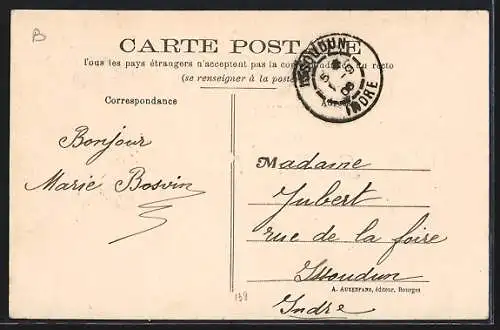 B
CARTE POSTALE
Tous les pays étrangers n'acceptent pas la correspondance au recto
(se renseigner à la poste)
ISSOUDUN
INDRE
Correspondance
Bonjour
Marie Bosvin
Madame
Jubert
rue de la foire
Issoudun
A. AUXENFANS, éditeur, Bourges
Indre
138